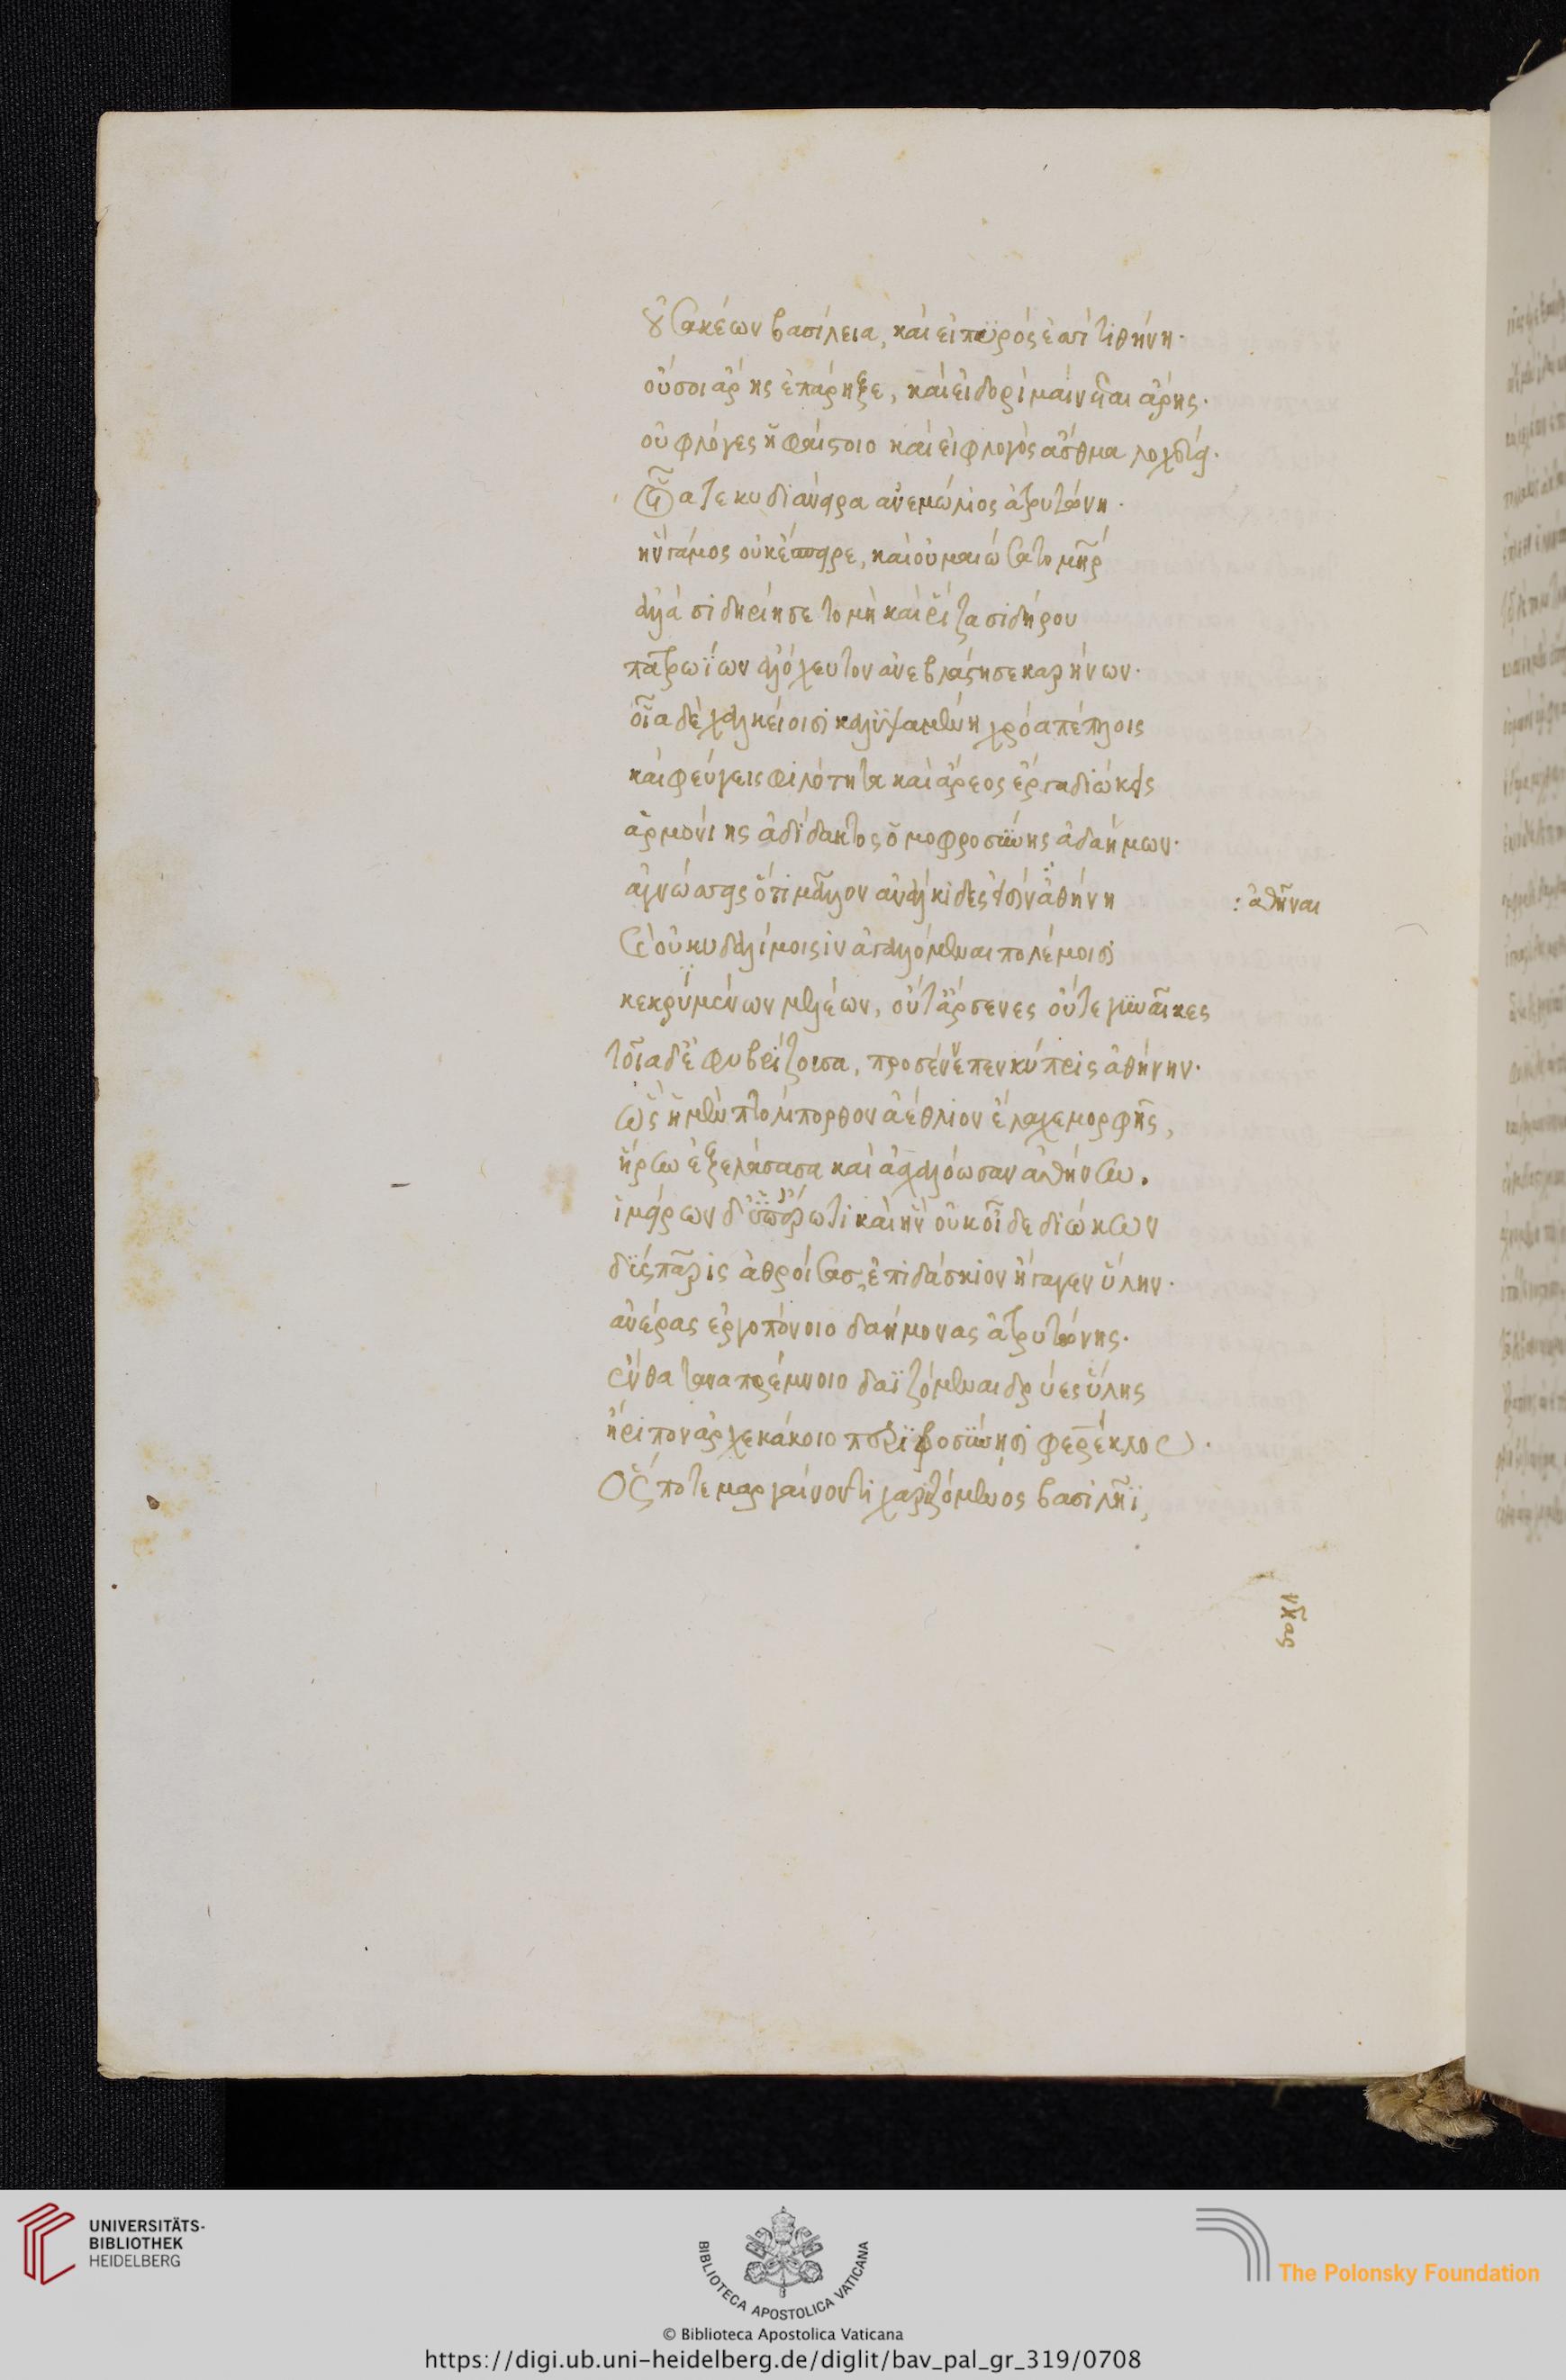 οὐ σακέων βασίλεια, καὶ εἰ πυρός ἐσσι τιθήνη·
οὔ σοι ἄρης ἐπάρηξε, καὶ εἰ δορὶ μαίνεται ἄρης·
οὐ φλόγες ἡφαίστοιο καὶ εἰ φλογὸς ἄσθμα λοχεύεις·
οἷά τε κυδιάνειρα ἀνεμώλιος ἀτρυτώνη·
ἣν γάμος οὐκ ἔσπειρε, καὶ οὐ μαιώσατο μήτηρ
ἀλλὰ σιδηρείη σε τομὴ καὶ ῥίζα σιδήρου
πατρωΐων ἀλόχευτον ἀνεβλάστησε καρήνων·
οἷα δὲ χαλκείοισι καλυψαμένη χρόα πέπλοις
καὶ φεύγεις φιλότητα καὶ ἄρεος ἔργα διώκεις
ἁρμονίης ἀδίδακτος ὁμοφροσύνης ἀδαήμων·
ἀγνώσσεις ὅτι μᾶλλον ἀνάλκιδές εἰσιν ἀθήνη :ἀθῆναι
σὲ οὐ κυδαλίμοισιν ἀγαλλόμεναι πολέμοισι
κεκρυμένων μελέων, οὔτ' ἄρσενες οὔτε γυναῖκες
τοῖα δ' ἐφυβρίζουσα, προσέννεπεν κύπρις ἀθήνην·
ὣς ἡ μὲν πτολίπορθον ἀέθλιον ἔλαχε μορφῆς,
ἥρων ἐξελάσασα καὶ ἀσχαλόωσαν ἀθήνων.
ἱμείρων δ' ὑπ' ἔρωτι καὶ ἣν οὐκ οἶδε διώκων
δύσπαρις ἀθροίσας, ἐπιδάσκιον ἤγαγεν ὕλην·
ἀνέρας ἐργοπόνοιο δαήμονας ἀτρυτώνης·
ἔνθα ταναπρέμνοιο δαϊζόμεναι δρύες ὕλης
ἤριπον ἀρχεκάκοιο περιφροσύνησι φερέκλου·
Ὅς ποτε μαργαίνοντι χαριζόμενος βασιλῆϊ,
νῆας
UNIVERSITÄTS-
BIBLIOTHEK
HEIDELBERG
BIBLIOTECA APOSTOLICA VATICANA
The Polonsky Foundation
© Biblioteca Apostolica Vaticana
https://digi.ub.uni-heidelberg.de/diglit/bav_pal_gr_319/0708